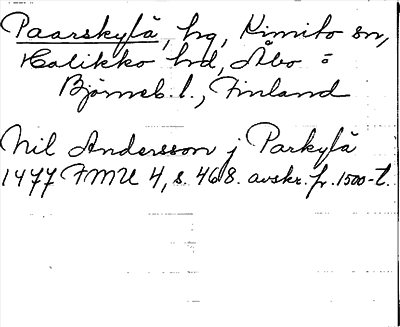 Paarskylä, hg, Kimito sn,
Halikko hd, Åbo o
Björneb. l., Finland
Nil Andersson j Parkylä
1477 FMU 4, s. 468. avskr. fr. 1500-t.